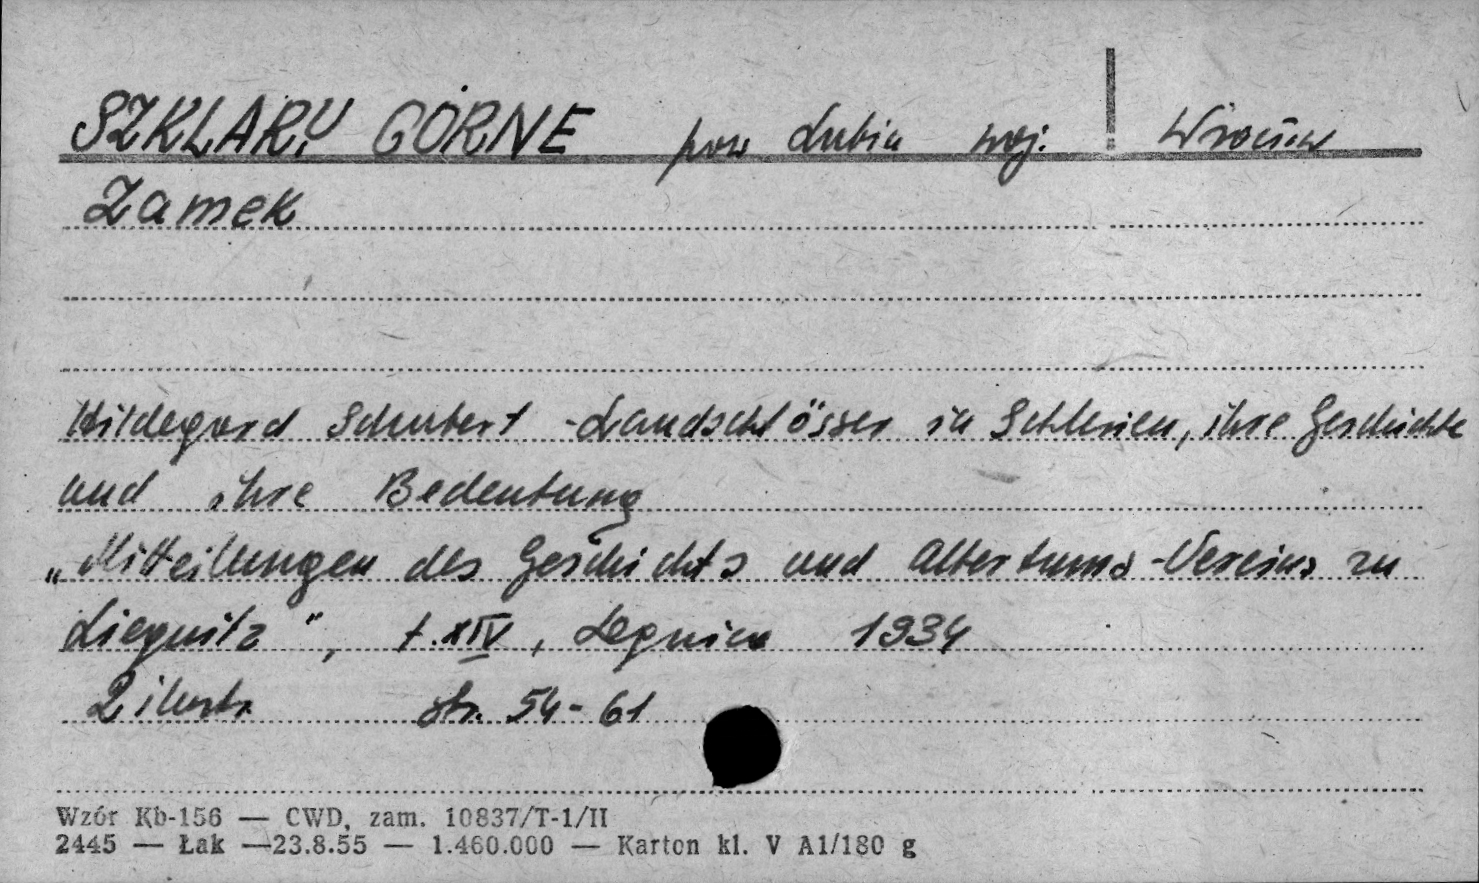 SZKLARY GÓRNE pow Lubin woj. Wrocław
Zamek
Hildegard Schubert - Landschlösser in Schlesien, ihre Geschichte
und ihre Bedeutung
„Mitteilungen des Geschichts und Altertums-Vereins zu
Liegnitz", t. XIV, Legnica 1934
2 ilustr. str. 54-61
Wzór Kb-156 — CWD, zam. 10837/T-1/II
2445 — Łak —23.8.55 — 1.460.000 — Karton kl. V A1/180 g